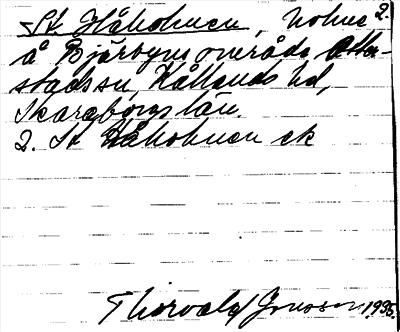 St Håholmen, holme 2.
å Bjärbyns område Otter-
stads sn, Kållands hd,
Skaraborgs län.
2. St Håholmen ek
Thorvald Jonsson 1935.